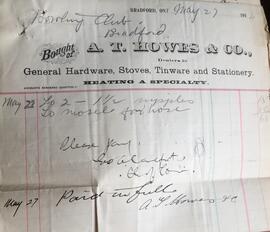 BRADFORD, ONT May 27 191
Bowling Club
Bradford
Bought of
A. T. HOWES & CO.,
Dealers in
General Hardware, Stoves, Tinware and Stationery.
HEATING A SPECIALTY.
May 22 To 2 - 1 1/2 nipples
To nozel for hose
Please pay
May 27 Paid in full
A T Howes & C